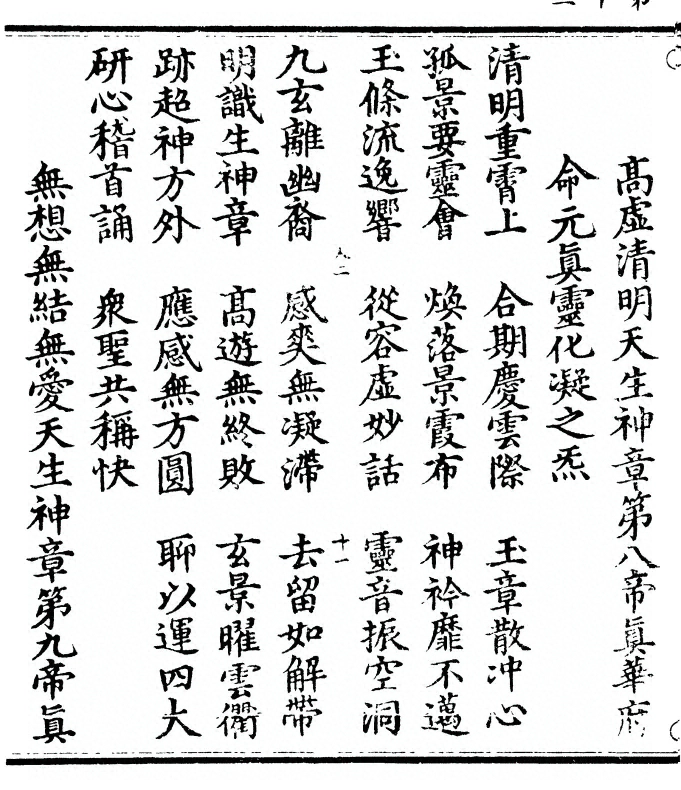 高虛清明天生神章第八帝眞華府
命元眞靈化凝之炁
清明重霄上　合期慶雲際　玉章散沖心
孤景要靈會　煥落景霞布　神衿靡不邁
玉條流逸響　從容虛妙話　靈音振空洞
九玄離幽裔　感爽無凝滯　去留如解帶
明識生神章　高遊無終敗　玄景曜雲衢
跡超神方外　應感無方圓　聊以運四大
研心稽首誦　衆聖共稱快
無想無結無愛天生神章第九帝眞
十一